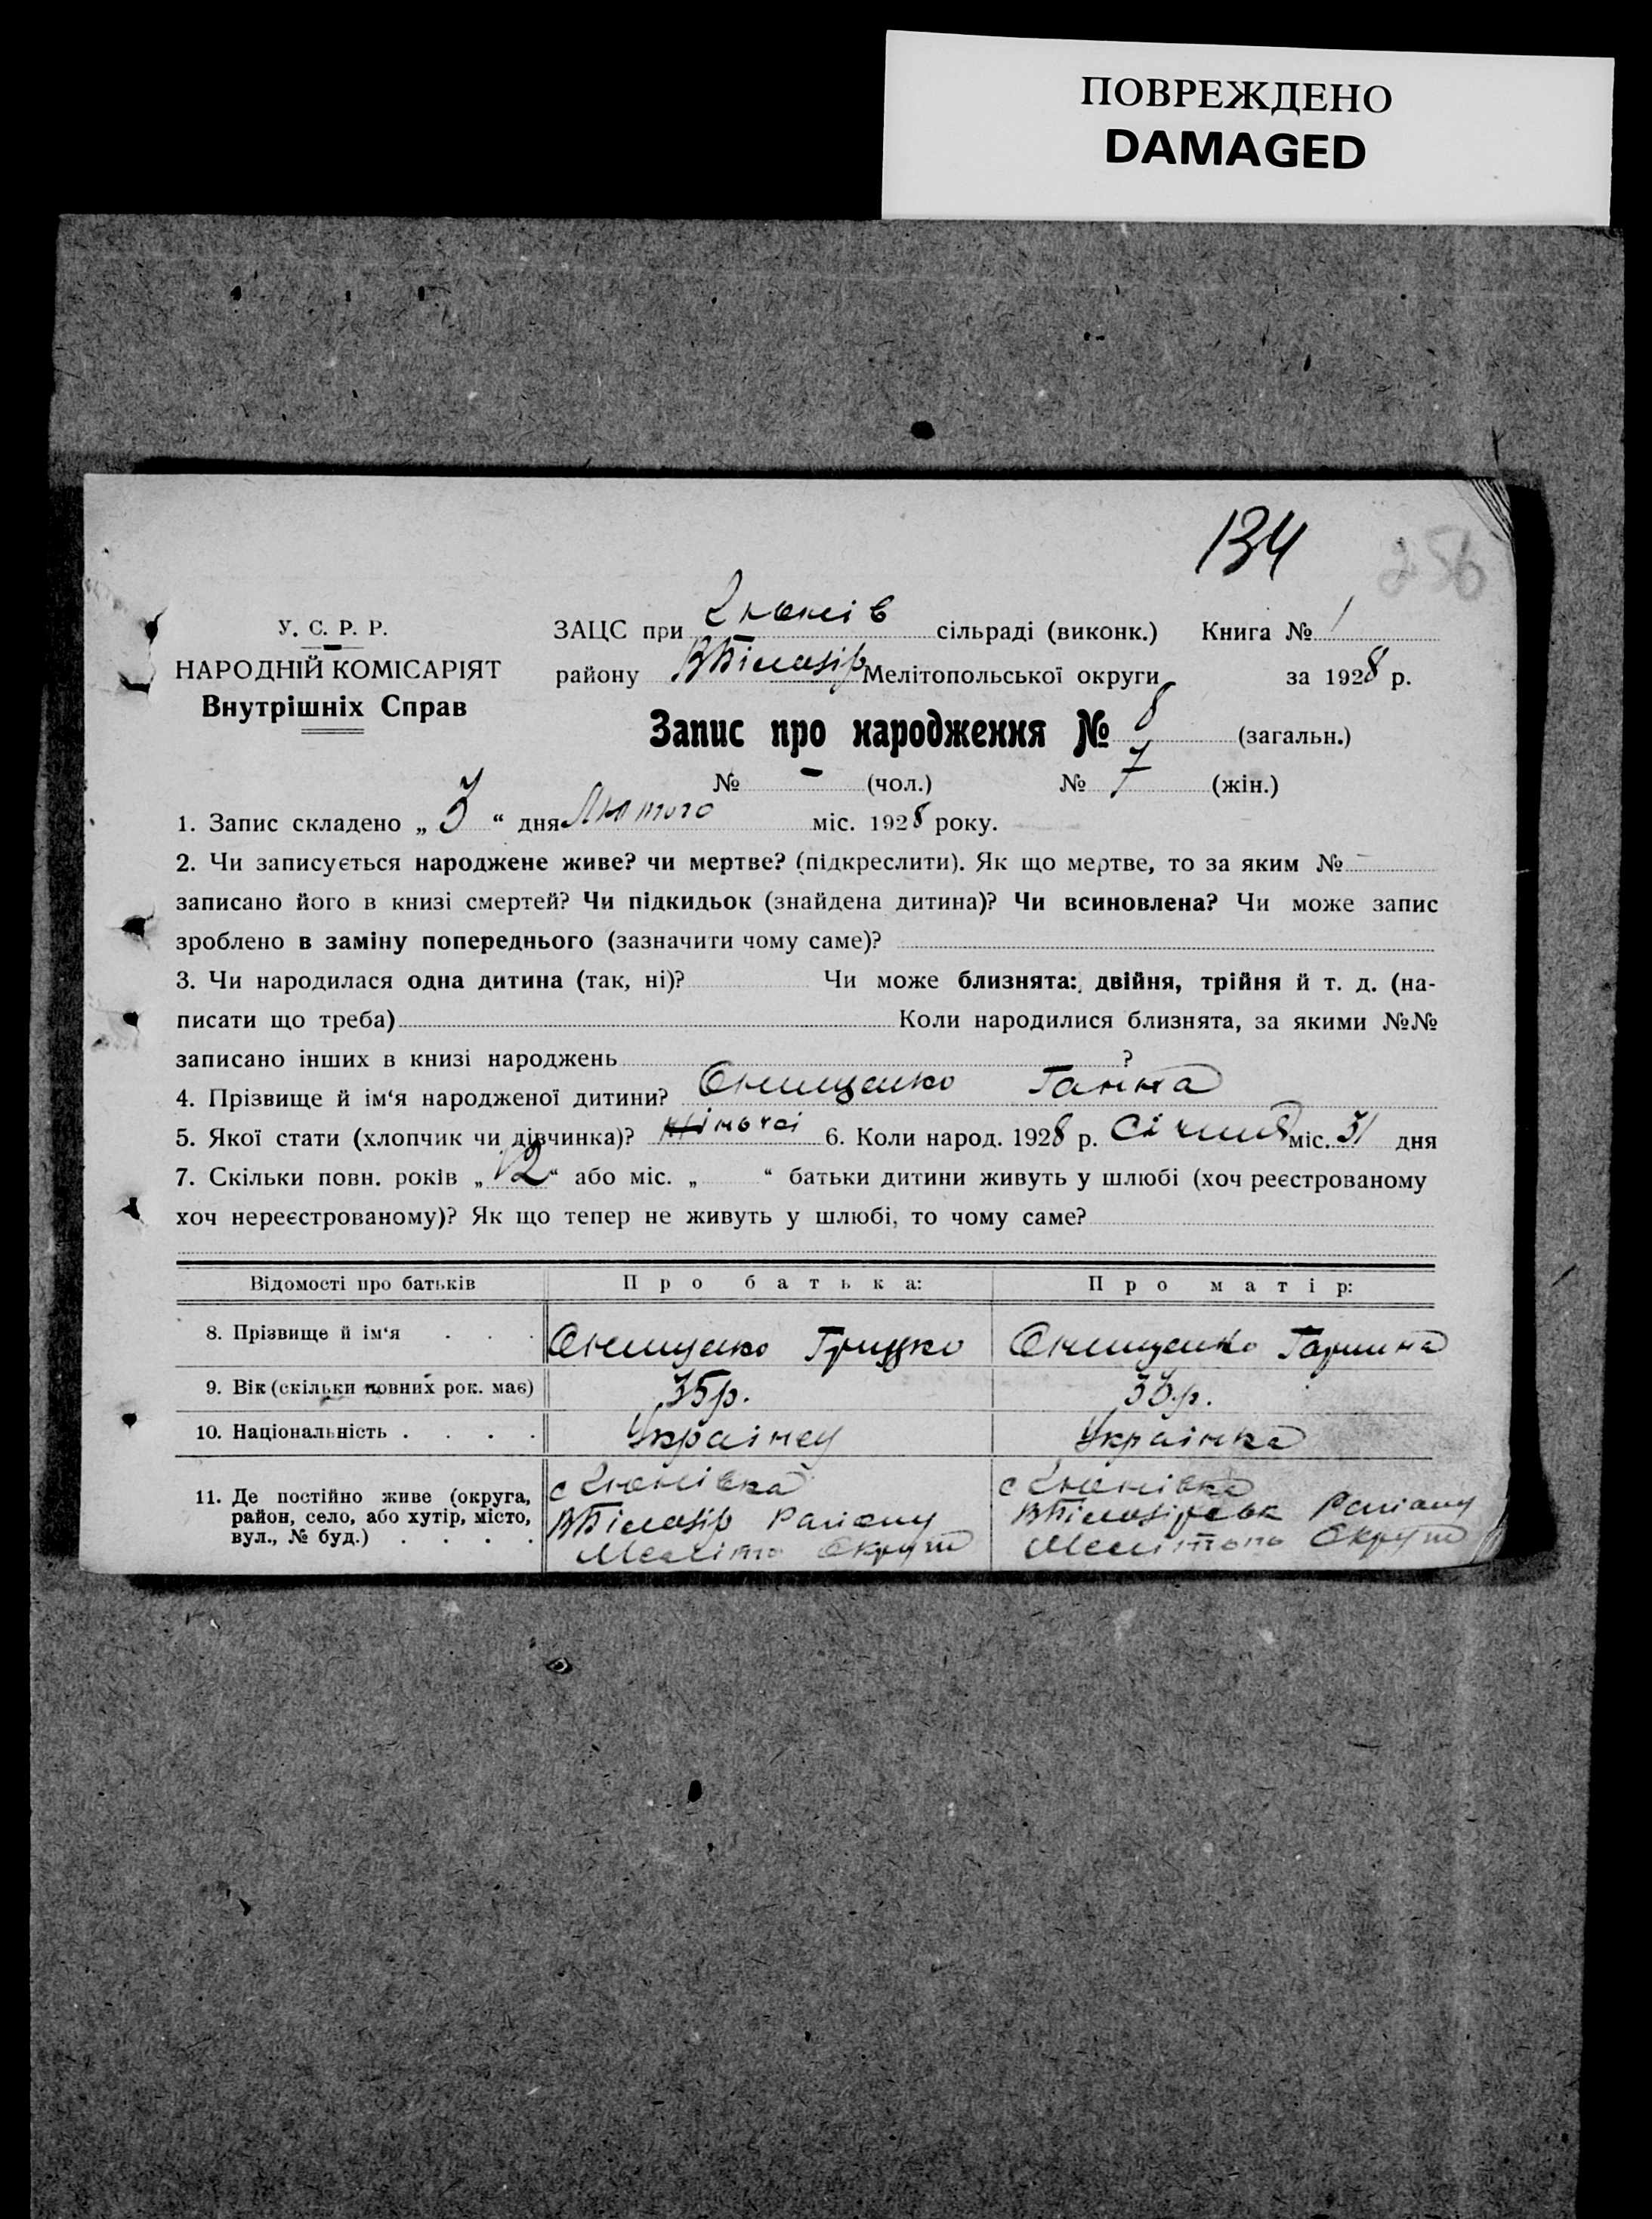 ПОВРЕЖДЕНО
DAMAGED
134
256
У. С. Р. Р.
НАРОДНІЙ КОМІСАРІЯТ
Внутрішніх Справ
ЗАЦС при сільраді (виконк.) Книга № 1
району ВБілозір Мелітопольської округи за 1928 р.
Запис про народження № 8 (загальн.)
№ – (чол.) № 7 (жін.)
1. Запис складено „ 3 “ дня Лютого міс. 1928 року.
2. Чи записується народжене живе? чи мертве? (підкреслити). Як що мертве, то за яким №
записано його в книзі смертей? Чи підкидьок (знайдена дитина)? Чи всиновлена? Чи може запис
зроблено в заміну попереднього (зазначити чому саме)?
3. Чи народилася одна дитина (так, ні)? Чи може близнята: двійня, трійня й т. д. (на-
писати що треба) Коли народилися близнята, за якими №№
записано інших в книзі народжень ?
4. Прізвище й ім‘я народженої дитини? Онищенко Ганна
5. Якої стати (хлопчик чи дівчинка)? жіночої 6. Коли народ. 1928 р. Січня міс. 31 дня
7. Скільки повн. років „ 12 “ або міс. „ “ батьки дитини живуть у шлюбі (хоч реєстрованому
хоч нереєстрованому)? Як що тепер не живуть у шлюбі, то чому саме?
Відомості про батьків Про батька: Про матір:
8. Прізвище й ім‘я . . . Онищенко Грицко Онищенко Гарпина
9. Вік (скільки повних рок. має) 35р. 33р.
10. Національність . . . . Українец Українка
11. Де постійно живе (округа, район, село, або хутір, місто, вул., № буд.) . . . .
с
ВБілозір Району
Меліто Округи
с
ВБілозірськ Району
Мелітопо Округи